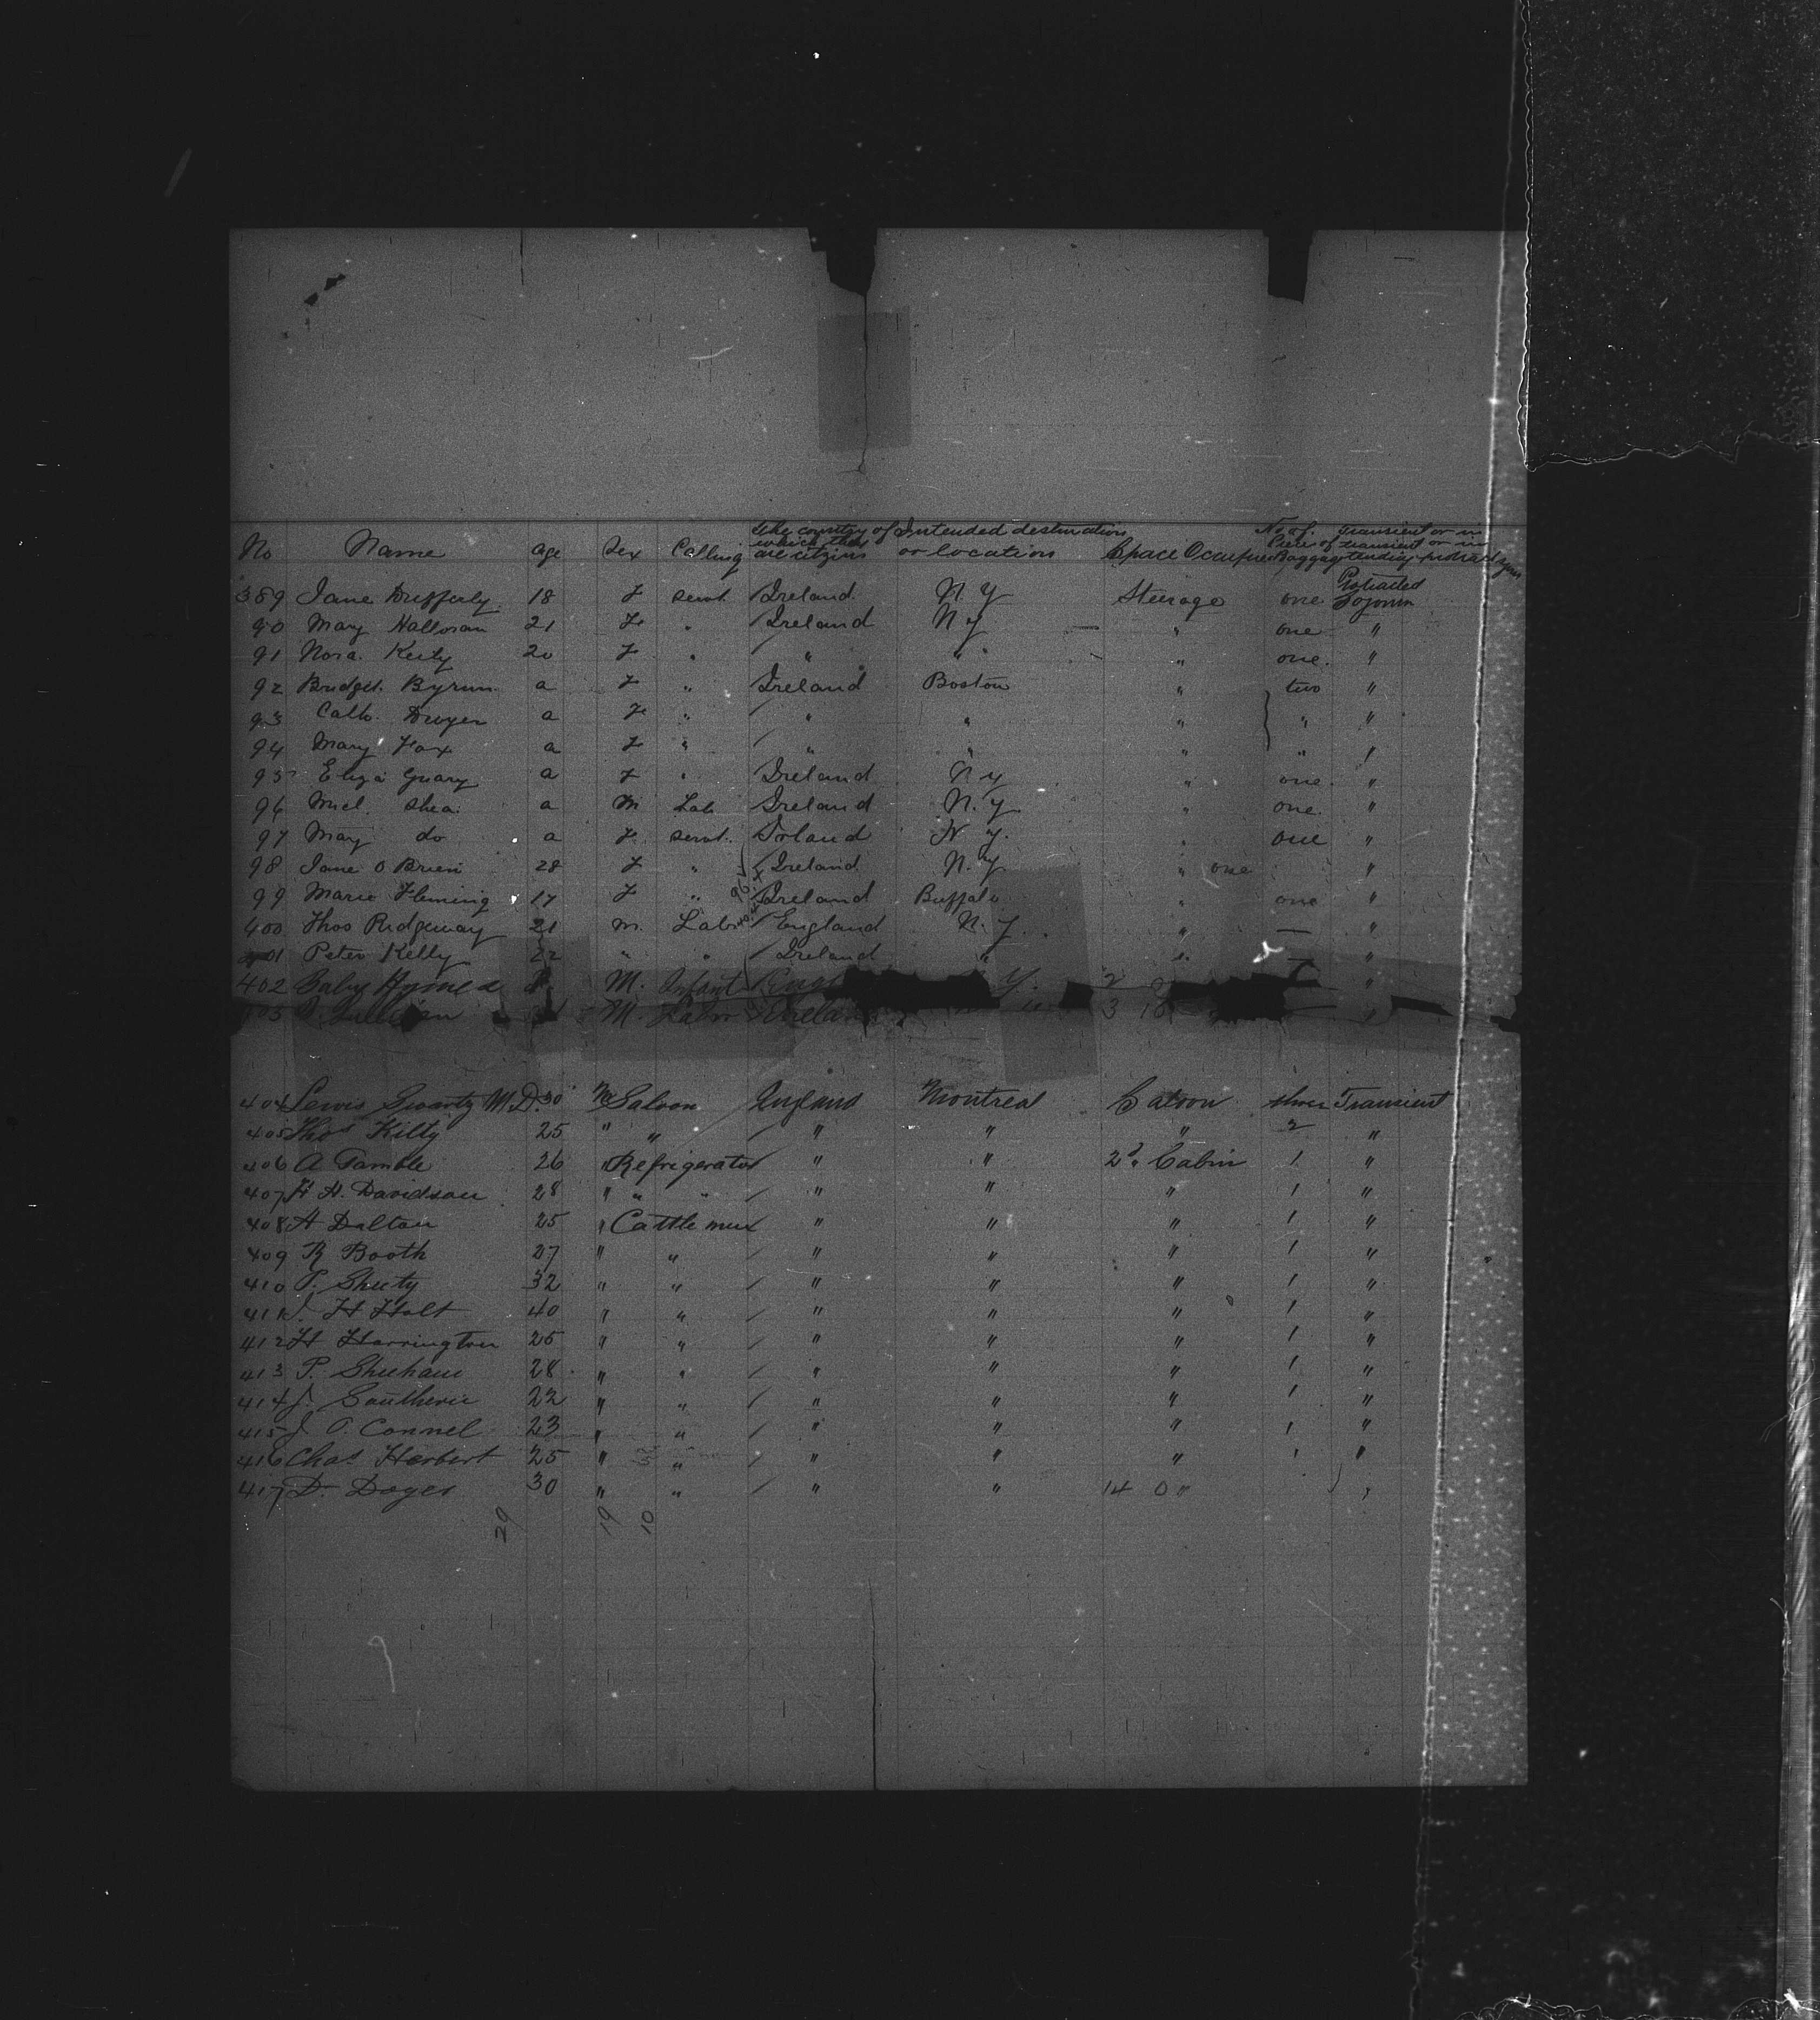 No Name age Sex Calling The country of which they are citizens Intended destination or location Space Occupied No of Pieces of Baggage transient or in transient or in tending protracted
389 Jane Dufferly 18 F servt Ireland N. Y Steerage one Protracted Sojourn
90 Mary Halloran 21 F " Ireland N Y " one "
91 Nora Keily 20 F " " " " one "
92 Bridget Byrnn a F " Ireland Boston " two "
93 Cath. Dwyer a F " " " " " "
94 Mary Fox a F " " " " " "
95 Eliza Geary a F " Ireland N Y " one "
96 Micl. Shea a M Lab Ireland N. Y " one "
97 Mary do a F servt. Ireland N Y. " one "
98 Jane O Brien 28 F " Ireland N. Y " one "
99 Marie Fleming 17 F " Ireland Buffalo " one "
400 Thos Ridgeway 21 m. Labr England N. Y. " — "
401 Peter Kelly 22 " " Ireland " " — "
402 Baby M. Infant Y. 2 "
M. Labr 3 18 "
404 Lewis Swartz M.D. 30 M Saloon England Montreal Saloon three Transient
405 Thos Kilty 25 " " " " " 2 "
406 A Gamble 26 " Refrigerator " " 2d. Cabin 1 "
407 H H. Davidson 28 " " " " " " 1 "
408 A Dalton 25 " Cattle men " " " 1 "
409 R Booth 27 " " " " " 1 "
410 P. Sheety 32 " " " " " 1 "
411 J. H Holt 40 " " " " " 1 "
412 H Harrington 25 " " " " " 1 "
413 P. Shehan 28 " " " " " 1 "
414 J. 22 " " " " " 1 "
415 J O. Connel 23 " " " " " 1 "
416 Chas Herbert 25 " " " " " 1 "
417 D. Doyes 30 " " " " 14 0 " "
29 19 10